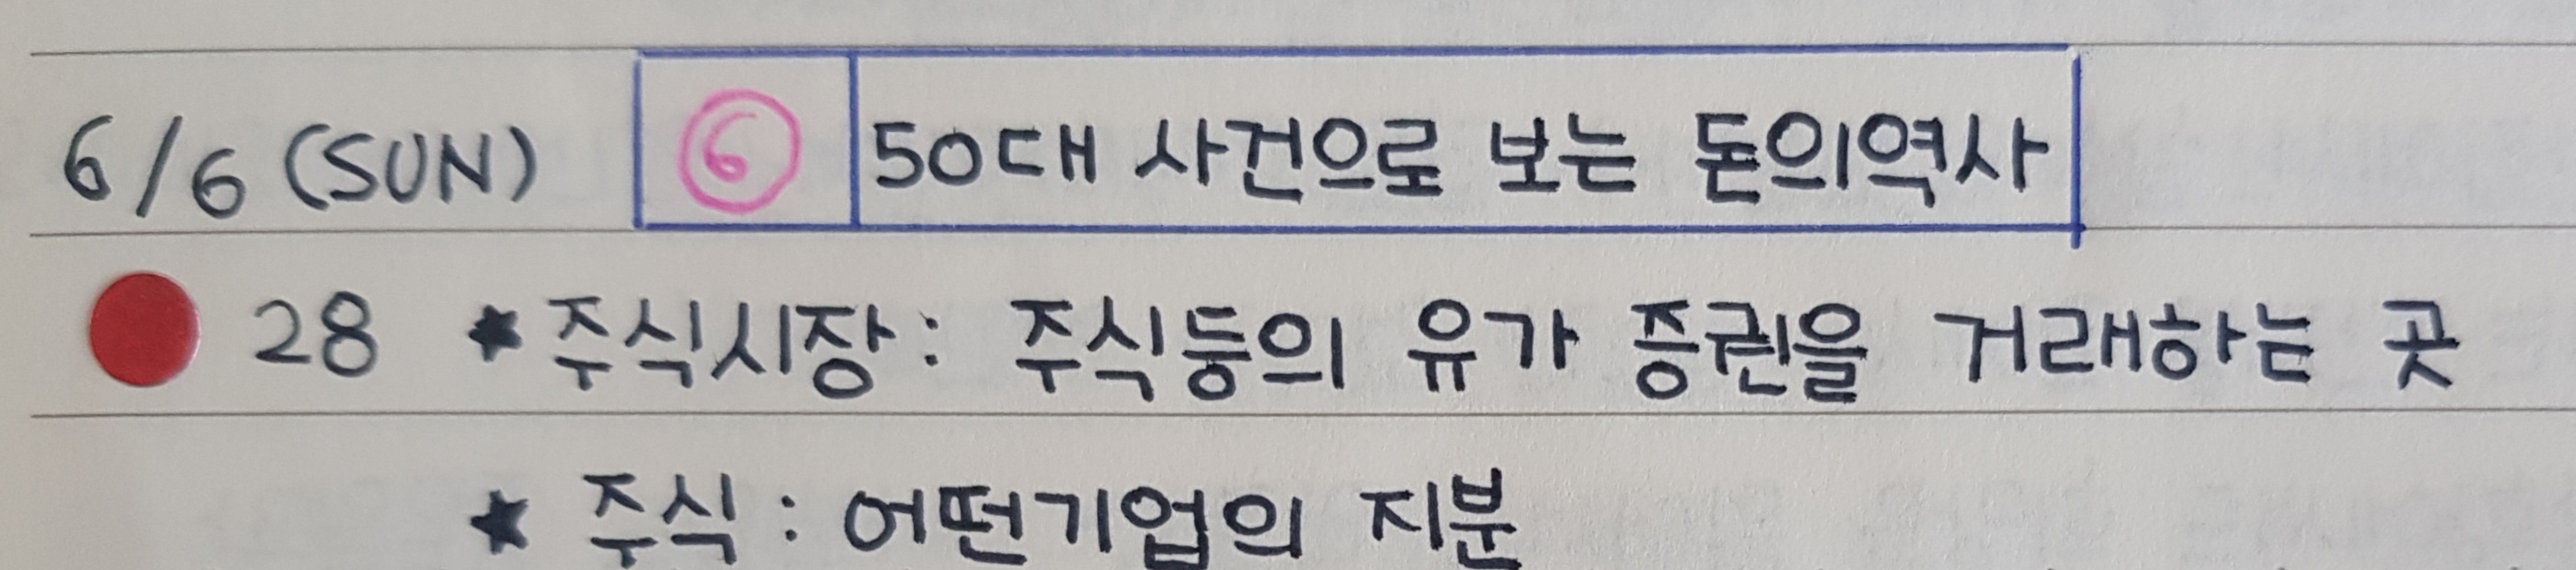 6/6 (SUN) ⑥ 50대 사건으로 보는 돈의역사
28 ★주식시장: 주식등의 유가 증권을 거래하는 곳
★ 주식: 어떤기업의 지분